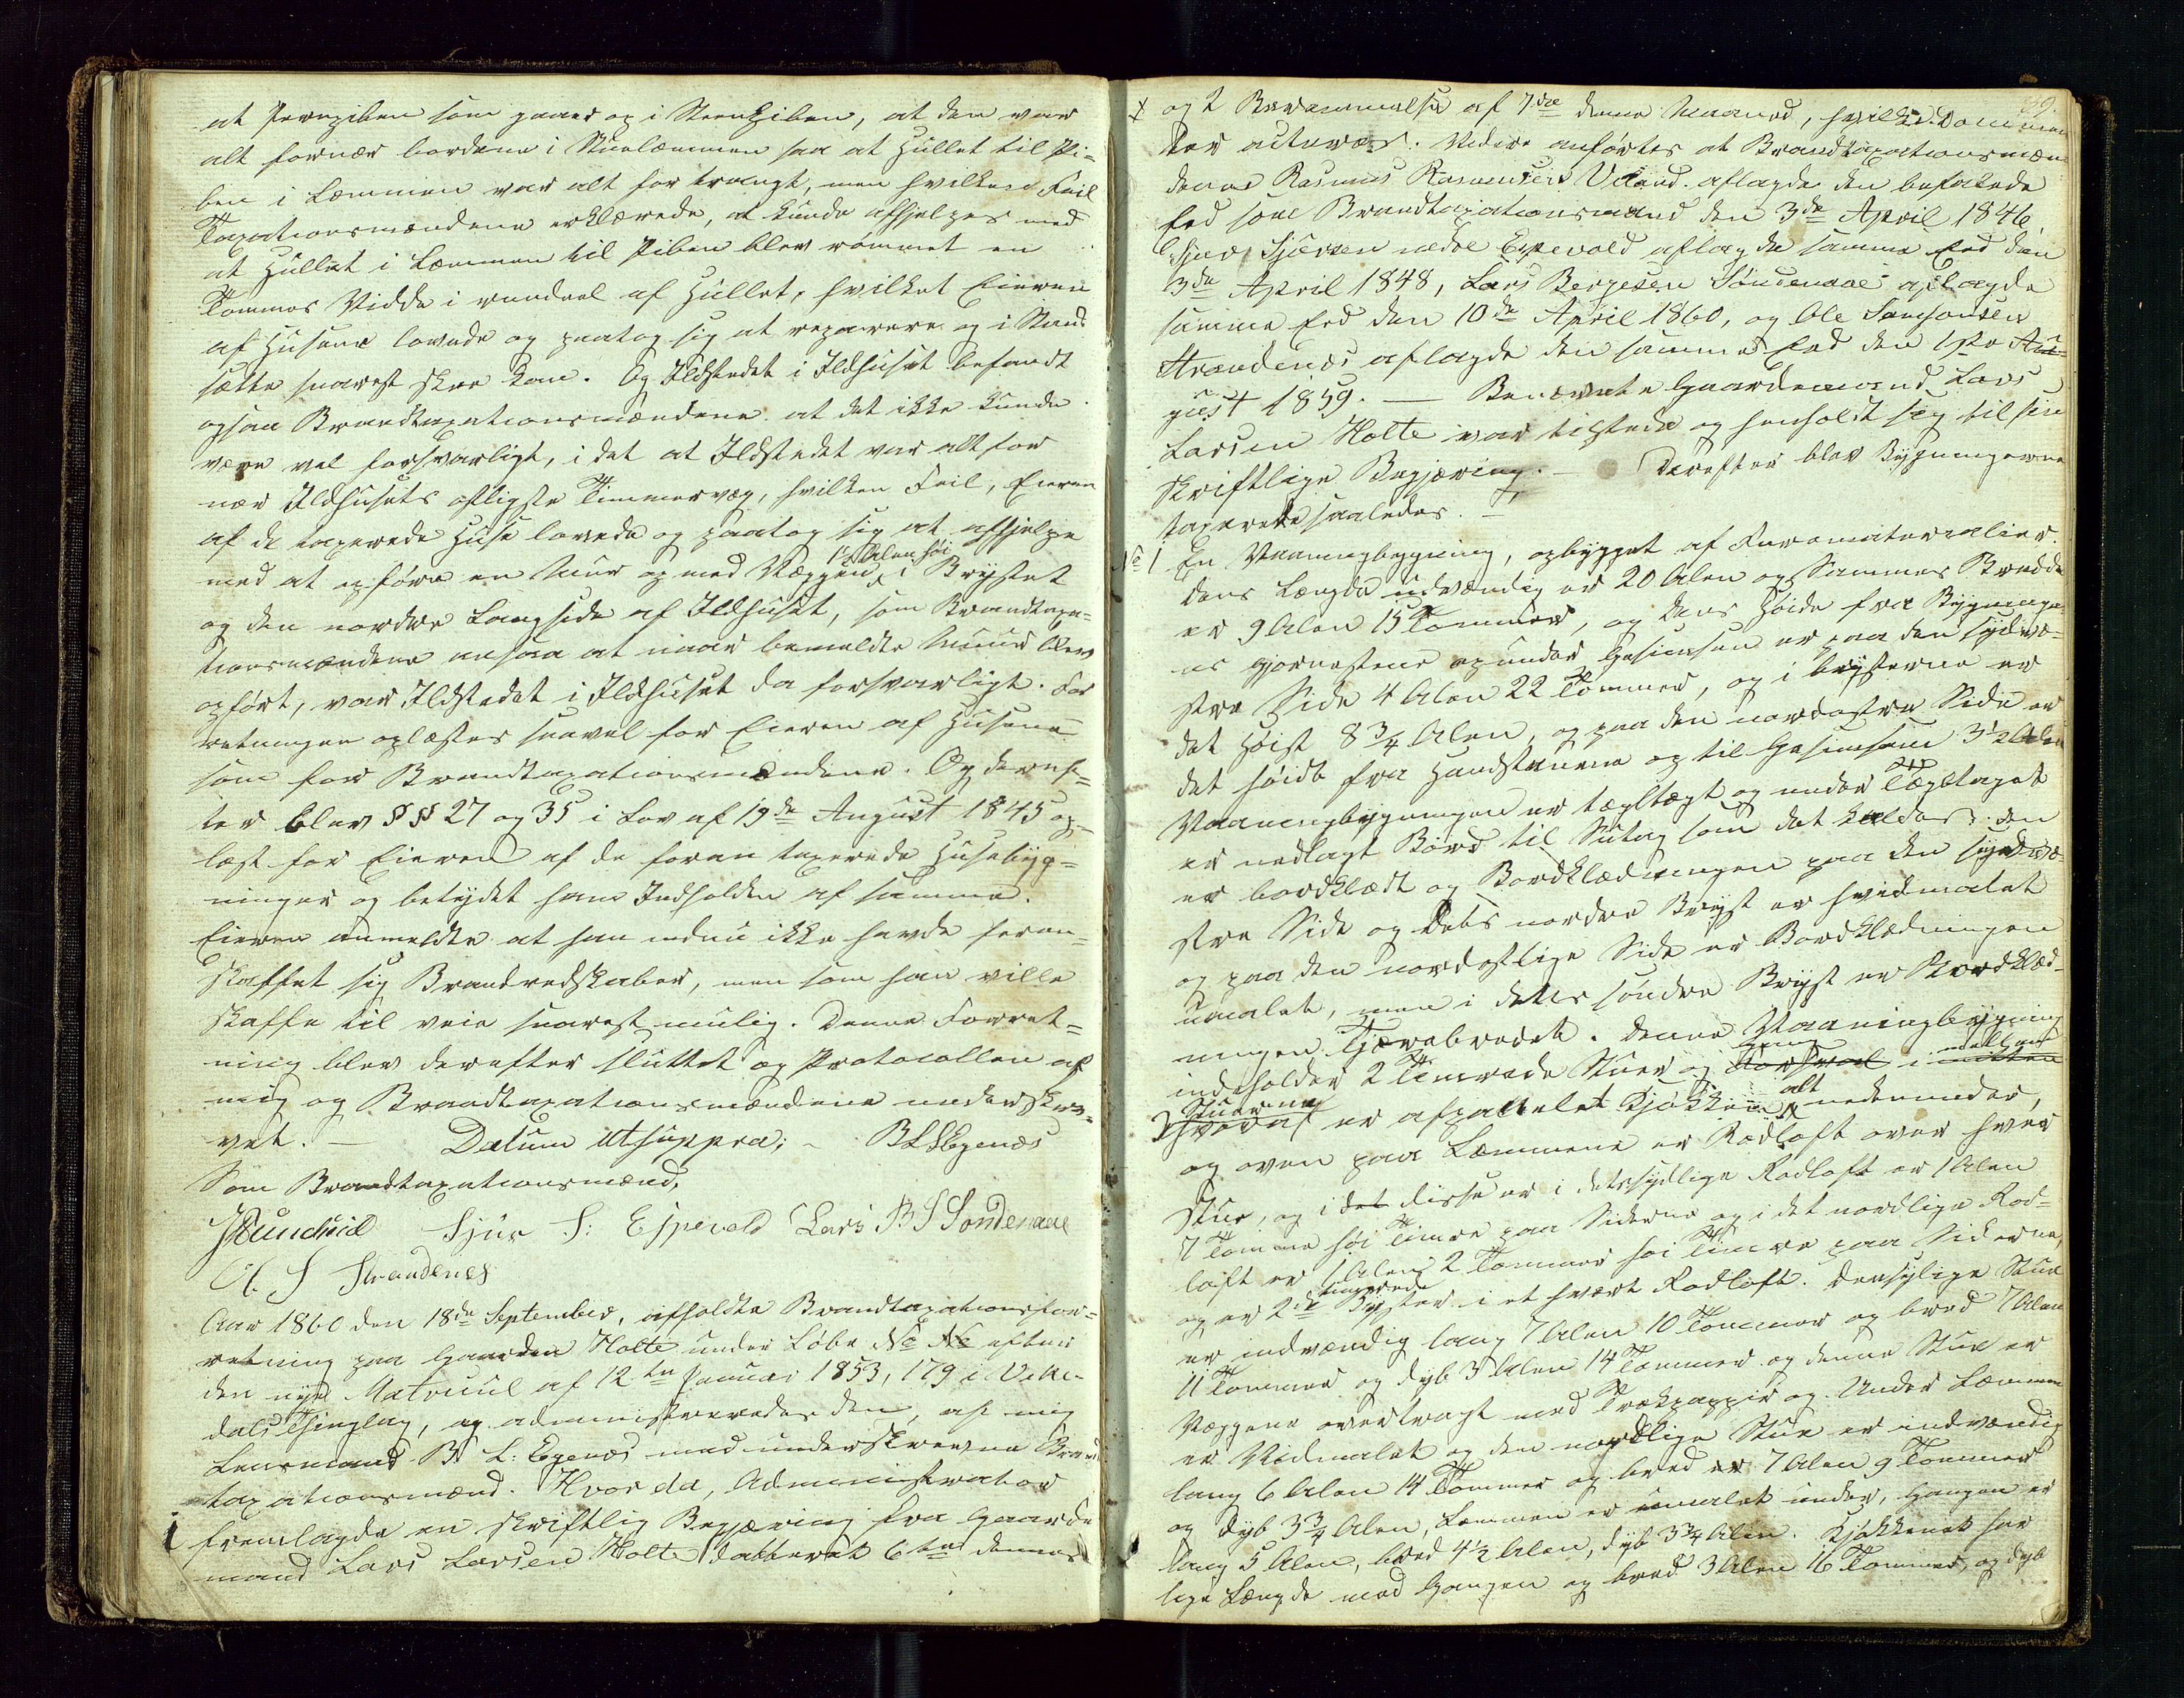 at Jernpiben som gaaer op i Steenpiben, at den var
alt fornær bordene i Stuelæmmen saa at Hullet til Pi-
ben i Læmmen var alt for trangt, men hvilken Feil
Taxationsmændene erklærede, at kunde afhjelpes med
at Hullet i Læmmen til Piben blev rømmet en
Tommes Vidde i rundeel af Hullet, hvilket Eieren
af Husene lovede og paatog sig at reparere og i Stand
sætte snarest skee kan. Og Ildstedet i Ildhuset befandt
ogsaa Brandtaxationsmændene at det ikke kunde
være vel forsvarligt, i det at Ildstedet var alt for
nær Ildhusets østligste Timmervæg, hvilken Feil, Eieren
af de taxerede Huse lovede og paatog sig at afhjelpe
med at opføre en Muur op med Væggen 1½ Alen høi i Brystet
og den nordre Langside af Ildhuset, som Brandtaxa-
tionsmændene ansaa at naar bemeldte Muur blev
opført, var Ildstedet i Ildhuset da forsvarligt. For
retningen oplæstes saavel for Eieren af Husene
som for Brandtaxationsmændene. Og deref-
ter blev §§ 27 og 35 i Lov af 19de August 1845 op-
læst for Eieren af de foran taxerede Husebyg-
ninger og betydet ham Indholden af samme.
Eieren anmeldte at han endnu ikke havde foran-
skaffet sig Brandredskaber, men som han ville
skaffe til veie snarest mulig. Denne Forret-
ning blev derefter sluttet og Protocollen af
mig og Brandtaxationsmændene underskre-
vet. — Datum utsuppra; - B L Egenæs
Som Brandtaxationsmænd,
Sjur S: Espevold Lars B S Søndenaae
O. S Strandenes
Aar 1860 den 18de September, afholdte Brandtaxationsfor-
retning paa Gaarden Holte under Løbe No No efter
den nye Matricul af 12te Januar 1853, 179 i Vikee-
dals Thinglag, og administreredes den af mig
Lensmand B L: Egenæs med underskrevne Brand
taxationsmænd. Hvor da, Administrator
fremlagde en skriftlig Begjæring fra Gaarde
mand Lars Larsen Holte datteret 6te dennes
og 2 Berammelse af 7de denne Maaned, hvilke Docume
ter acteres. Videre anførtes at Brandtaxationsmæn
dene Rasmus Rasmussen Veland aflagde den befalede
Eed som Brandtaxationsmand den 3de April 1846,
Sjur Sjursen nedre Espevold aflagde samme Eed den
3de April 1848, Lars Bergesen Søndenaae aflagde
samme Eed den 10de April 1860, og Ole Samsonsen
Strandenæs aflagde den samme Eed den 1ste Au-
gust 1859. — Benævnte Gaardemand Lars
Larsen Holte var tilstede og henholdt sig til sin
skriftlige Begjæring. — Derefter blev Bygningerne
taxerede saaledes. —
No 1 En Vaaningbygning, opbygget af Furematerialier.
dens Længde udvændig er 20 Alen og Sammes Bredde
er 9 Alen 15 Tommer, og dens Høide fra Bygninge-
ns hjørnestene op under Gesimsen er paa den sydve-
stre Side 4 Alen 22 Tommer, og i brysterne er
det Høist 8¾ Alen, og paa den nordøstre Side er
det høide fra Haandstenene og til Gesimsen 3½ Alen
Vaaningbygningen er tægltægt og under Tægltaget
er nedlagt Bord til Sutag som det kaldes, den
er bordklædt og Bordklædningen paa den sydve-
stre Side og dets nordre Bryst er hvidmalet
og paa den nordostlige Side er Bordklædningen
umalet, men i dettes søndre Bryst er Bordklæd-
ningen Tjærebredet. Denne Vaaningbygning
indeholder 2 Timrede Stuer og Gang Forsval i mellem midten
Stuerne hvoraf er afpanelet Kjøkken, alt nedenunder,
og oven paa Læmmene er Rodloft over hver
Stue, og i det disse er i detsydlige Rodloft er 1 Alen
7 Tomme høi Timre paa Siderne og i det nordlige Rod-
loft er 1 Alen 2 Tommer høi Timre paa Siderne,
og er 2de timrede Bryster i et hvært Rodloft. Densydlige Stue
er indvændig lang 7 Alen 10 Tommer og bred 7 Alen
11 Tommer og dyb 3 Alen 14 Tommer og denne Stue er
Væggene overtragt med Trækpappir og Under Læmmen
er Vidmalet og den nordlige Stue er indvændig
lang 6 Alen 14 Tommer og bred er 7 Alen 9 Tommer
og dyb 3¾ Alen, Læmmen er umalet under, Gangen er
lang 5 Alen, bred 4½ Alen, dyb 3¾ Alen. Kjøkkenet har
lige Længde med Gangen og bred 3 Alen 16 Tommer, og dyb